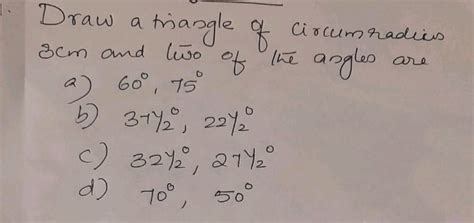 1. Draw a triangle of circumradius
3cm and two of the angles are
a) 60°, 75°
b) 37½°, 22½°
c) 32½°, 27½°
d) 70°, 50°